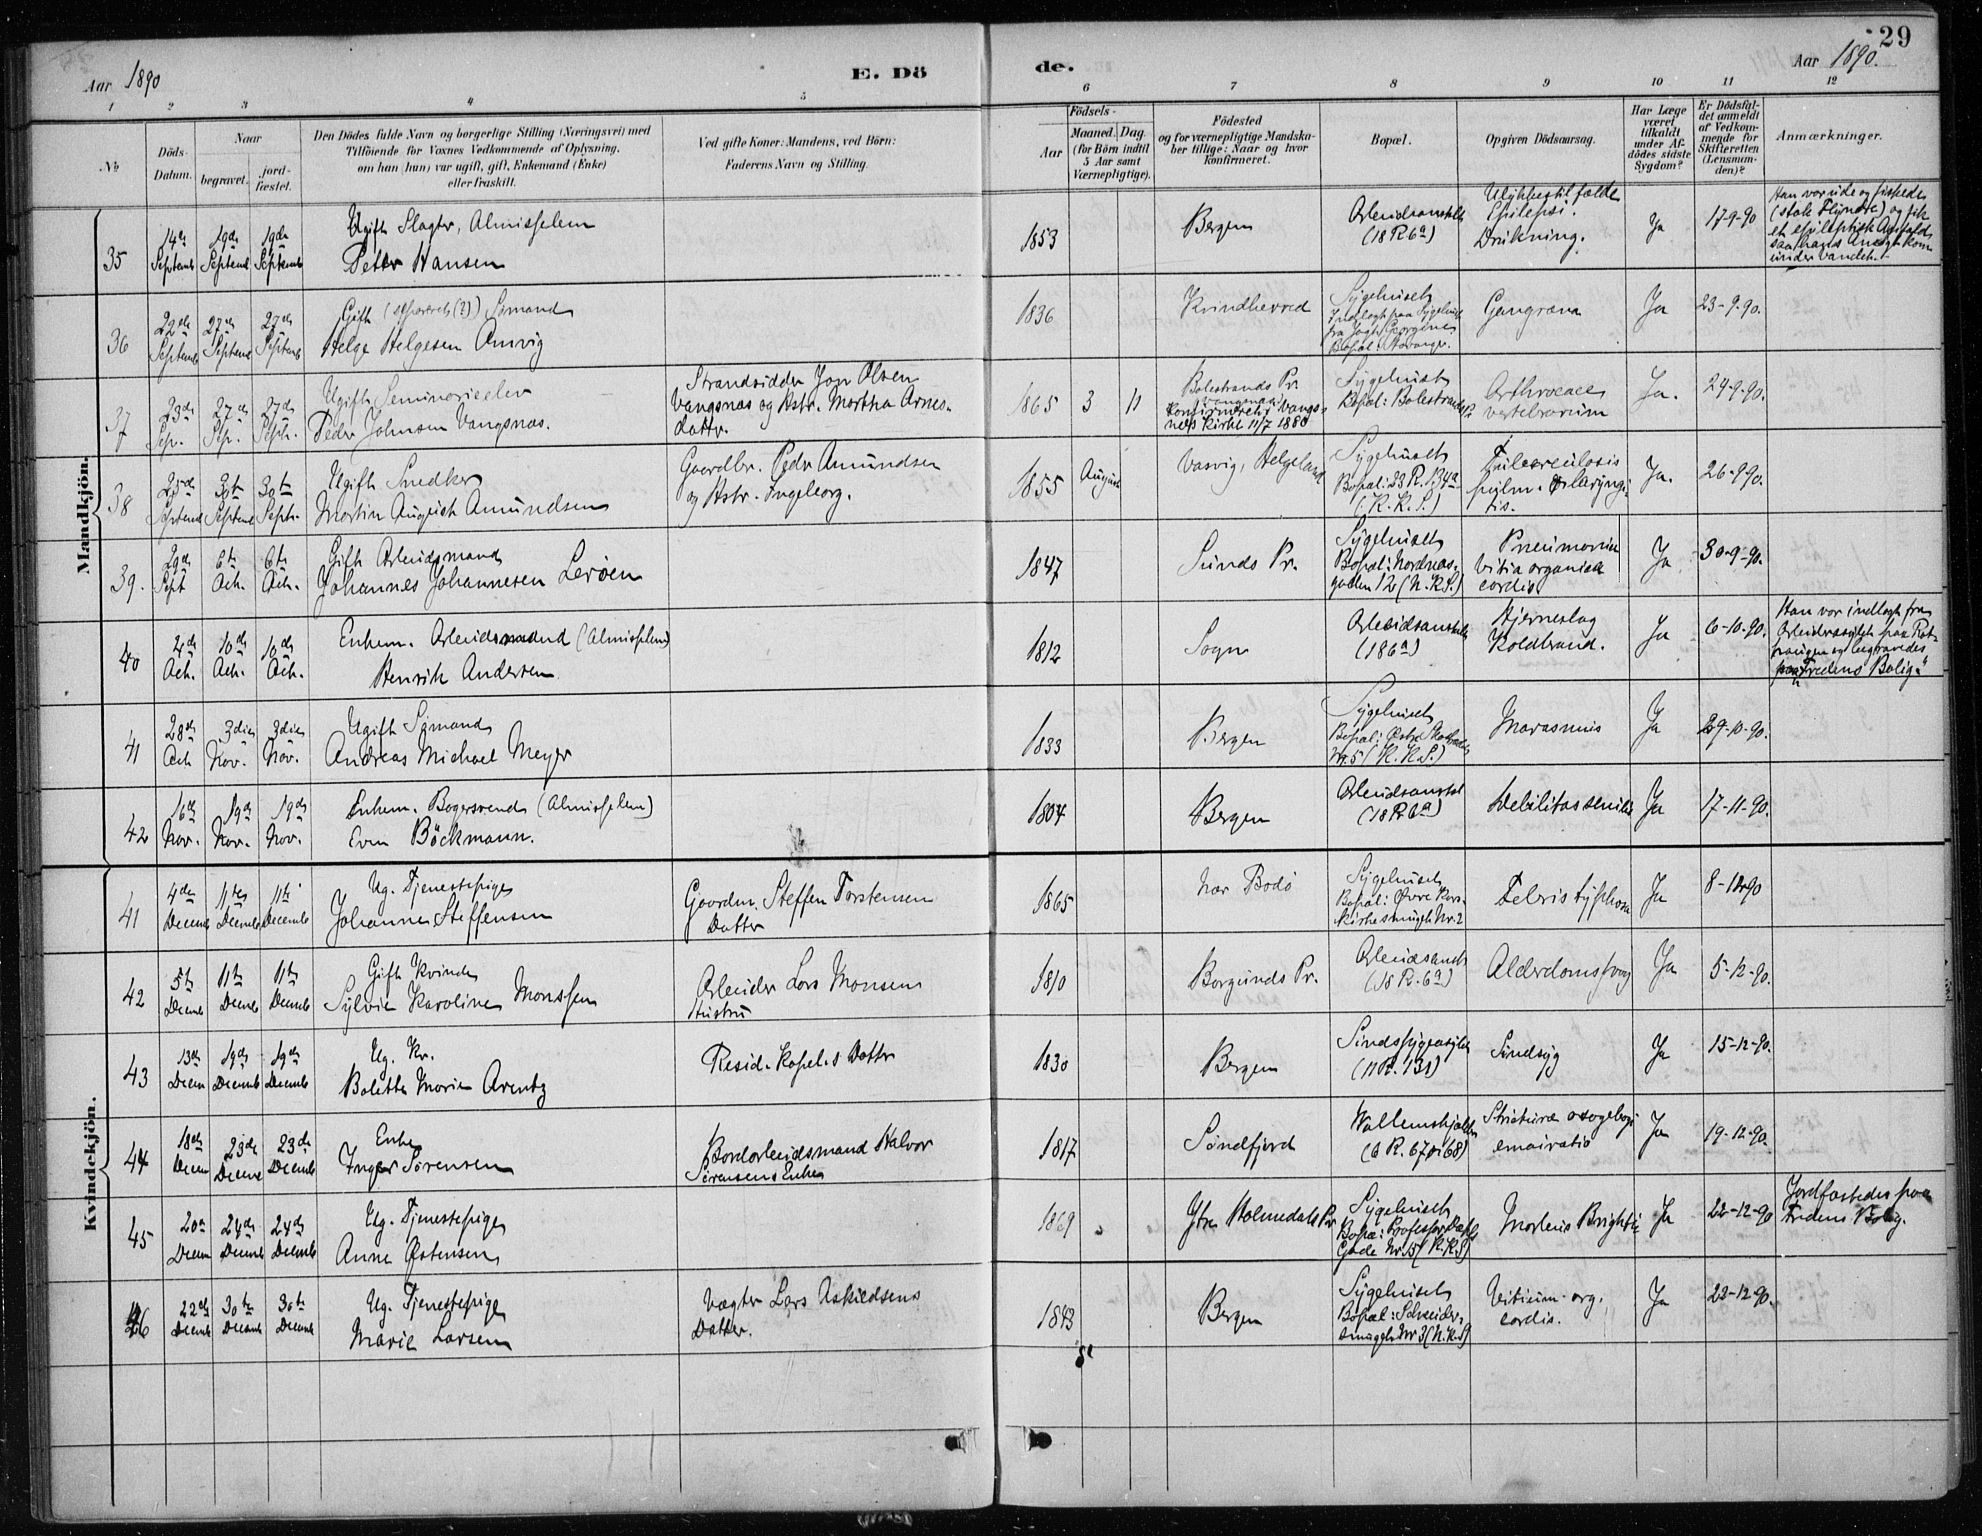 29
Aar 1890
E. Dö
de.
Aar 1890.
1 2 3 4 5 6 7 8 9 10 11 12
No.
Döds-
Datum.
Naar
begravet.
jord-
fæstet.
Den Dödes fulde Navn og borgerlige Stilling (Næringsvei) med
Tilföiende for Voxnes Vedkommende af Oplysning,
om han (hun) var ugift, gift, Enkemand (Enke)
eller fraskilt.
Ved gifte Koner: Mandens, ved Börn:
Faderens Navn og Stilling.
Födsels-
Aar
Maaned. Dag.
(for Börn indtil
5 Aar samt
Værnepligtige).
Födested
og for værnepligtige Mandska-
ber tillige: Naar og hvor
konfirmeret.
Bopæl.
Opgiven Dödsaarsag.
Har Læge
været
tilkaldt
under Af-
dödes sidste
Sygdom?
Er Dödsfal-
det anmeldt
af Vedkom-
mende for
Skifteretten
(Lensman-
den)?
Anmærkninger.
Mandkjön.
35
14de Septemb
19de Septemb
19de Septemb
Ugift Slagter, Almisselem
Petter Hansen
1853
Bergen
Arbeidsanstalt
(18 R 6a)
Epilepsi.
Drukning.
Ja
17-9-90
Han var ude og fiskede
(stak Flyndre) og fik
et epileptisk Anfald
saa hans Ansigt kom
under Vandet.
36
22de Septemb
27de Septemb
27de Septemb
Gift (separeret (?)) Sömand
Helge Helgesen Amvig
1836
Kvindherred
Sygehuset
Indlagt paa Sygehuset
fra Jagt Georgine
Bopæl: Stavanger.
Gangræna
Ja
23-9-90.
37
23de Sep.
27de Sep.
27de Sept.
Ugift Seminarieelev
Peder Johnsen Vangsnæs.
Strandsidder Jon Olsen
Vangsnæs og Hstr. Martha Arnes-
datter.
1865 3 11
Balestrands Pr.
Vangsnæs
Konfirmeret i Vangs-
næs Kirke 11/7 1880
Sygehuset
Bopæl: Balestrand
Arthrocace
vertebrarum
Ja.
24-9-90.
38
25de Septemb
30te Septemb
30te Septr.
Ugift Snedker
Martin August Amundsen
Gaardbr. Peder Amundsen
og Hstr. Ingeborg.
1855 August
Vasvig, Helgeland
Sygehuset
Bopæl: 23 R. 134a
(K. K. S.)
Tuberculosis
pulm. & laryngi-
tis.
Ja.
26-9-90.
39.
29de Sept
6te Oct.
6te Oct.
Gift Arbeidsmand
Johannes Johannesen Leröen
1847
Sunds Pr.
Sygehuset
Bopæl: Nordnæs-
gaden 12 (N. K. S.)
Pneumonia
vitia organica
cordis
Ja
30-9-90.
40
4de Oct.
10de Oct.
10de Oct.
Enkem. Arbeidsmand (Almisselem)
Henrik Andersen
1812
Sogn
Arbeidsanstalt
(186a)
Hjerneslag
Koldbrand.
Ja
6-10-90.
Han var indlagt fra
Arbeidsasylet paa Rot-
haugen og begravedes
paa „Fredens Bolig“
41
28de Oct
3die Nov.
3die Nov.
Ugift Sömand
Andreas Michael Meyer
1833
Bergen
Sygehuset
Nr. 5 (K. K. S.)
Marasmus
Ja
29-10-90.
42
16de Nov.
19de Nov.
19de Nov.
Enkem. Bagersvend (Almisselem)
Even Böckmann.
1804
Bergen
Arbeidsanstalt
(18 R 6a)
Debilitas senilis
Ja
17-11-90.
Kvindekjön.
41
4de Decemb
11te Decemb
11te Decemb
Ug. Tjenestepige
Johanne Steffensen
Gaardm. Steffen Torstensen
Datter
1865
Nær Bodö
Sygehuset
Bopæl: Övre Kors-
kirkesmuget Nr. 2
Febris typhosa
Ja
8-12-90
42
5te Decemb
11te Decemb
11te Decemb
Gift Kvinde
Sylvie Karoline Monssen
Arbeider Lars Monsens
Hustru
1810
Borgunds Pr.
Arbeidsanst
(18 R. 6a)
Alderdomssvag
Ja
5-12-90.
43
13de Decem
19de Decemb
19de Decemb
Ug. Kv.
Bolette Marie Arentz
Resid. Kapel.s Datter
1830
Bergen
Sindssygeasylet
(11 R. 131)
Sindsyg
Ja
15-12-90.
44
18de Decem
23de Decem
23de Decemb
Enke
Inger Sörensen
Bordarbeidsmand Halvor
Sörensens Enke
1817
Söndfjord
(6 R. 67 & 68)
Ja
19-12-90.
45
20de Decem
24de Decemb
24de Decemb
Ug. Tjenestepige
Anne Østensen
1869
Ytre Holmedals Pr
Sygehuset
Bopæl: Professor Dahls
Gade Nr. 15 (K. K. S)
Morbus Brightii
Ja
22-12-90
Jordfæstedes paa
Fredens Bolig.
46
22de Decemb
30te Decemb
30te Decemb
Ug. Tjenestepige
Marie Larsen
Vægter Lars Askildsens
Datter.
1843
Bergen
Sygehuset
Bopæl: Schneider-
smuget Nr 3 (N. K. S)
Vitium org.
cordis.
Ja
22-12-90.